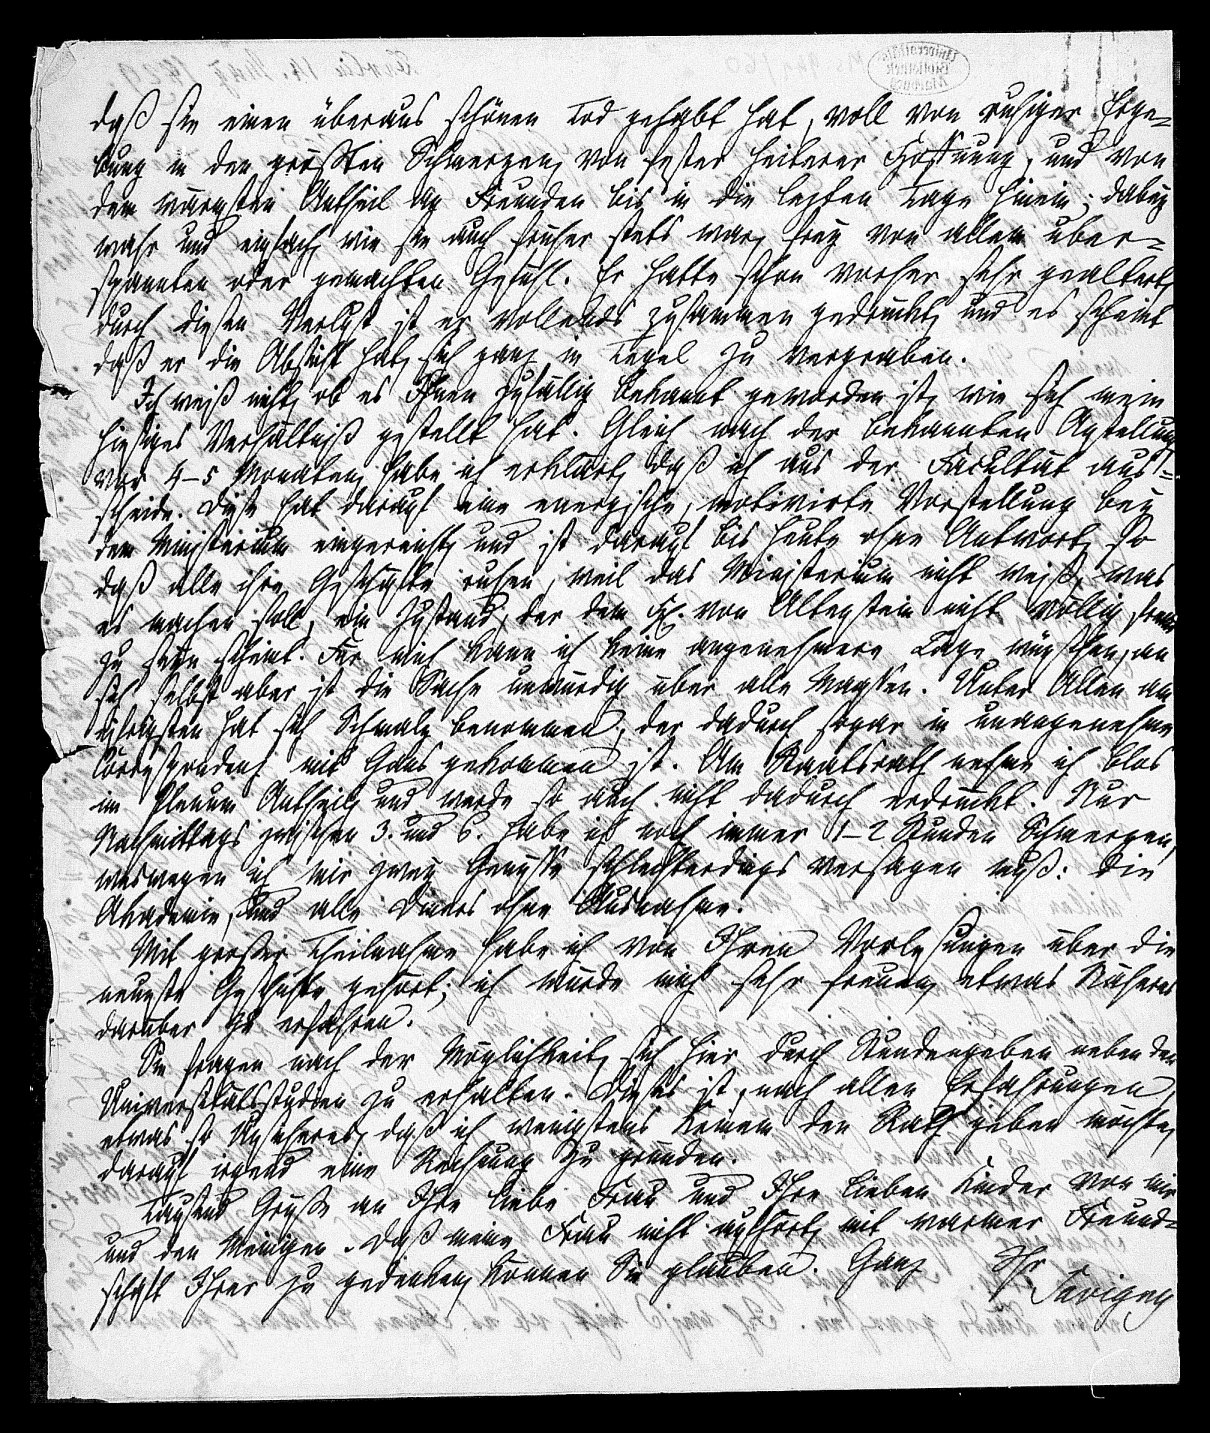 daß sie einen überaus schönen Tod gehabt hat, voll von ruhiger Erge-
bung in den größten Schmerzen, von fester heiterer Hoffnung, und von
dem wärmsten Antheil an Freunden bis in die letzten Tage hinein; dabey
wahr und einfach, wie sie auch früher stets war, frey von allem über-
spannten oder gemachten Gefühl. Er hatte schon vorher sehr gealtert,
durch diesen Verlust ist er vollends zusammen gedrückt, und es scheint
daß er die Absicht hat, sich ganz in Tegel zu vergraben.
Ich weiß nicht, ob es Ihnen zufällig bekannt geworden ist, wie sich mein
hiesiges Verhältniß gestellt hat. Gleich nach der bekannten Anstellung
vor 4-5 Monaten, habe ich erklärt, daß ich aus der Facultät aus-
scheide. Diese hat darauf eine energische, motivirte Vorstellung bey
dem Ministerium eingereicht, und ist darauf bis heute ohne Antwort, so
daß alle ihre Geschäfte ruhen, weil das Ministerium nicht weiß, was
es machen soll, ein Zustand, der dem H. von Altenstein nicht völlig fremd
zu seyn scheint. Für mich kann ich keine angenehmere Lage wünschen, an
sich selbst aber ist die Sache unwürdig über alle Maaßen. Unter Allen am
hat sich Schmalz benommen, der dadurch sogar in unangenehme
Correspondenz mit Gans gekommen ist. Am Staatsrath nehme ich blos
im Plenum Antheil, und werde so auch nicht dadurch erdrückt. Nur
Nachmittags zwischen 3. und 6. habe ich noch immer 1-2 Stunden Schmerzen,
weswegen ich mir zwey Genüsse schlechterdings versagen muß: die
Akademie, und alle Diners ohne Ausnahme.
Mit großer Theilnahme habe ich von Ihren Vorlesungen über die
neueste Geschichte gehört; ich würde mich sehr freuen, etwas Näheres
darüber zu erfahren.
Sie fragen nach der Möglichkeit, sich hier durch Stundengeben neben den
Universitätsstudien zu erhalten. Dieses ist, nach allen Erfahrungen,
etwas so Unsicheres, daß ich wenigstens Keinem den Rath geben möchte,
darauf irgend eine Rechnung zu gründen.
Tausend Grüße an Ihre liebe Frau und Ihre lieben Kinder von mir
und den Meinigen. Daß meine Frau nicht aufhört, mit warmer Freund-
schaft Ihrer zu gedenken, können Sie glauben. Ganz Ihr
Savigny